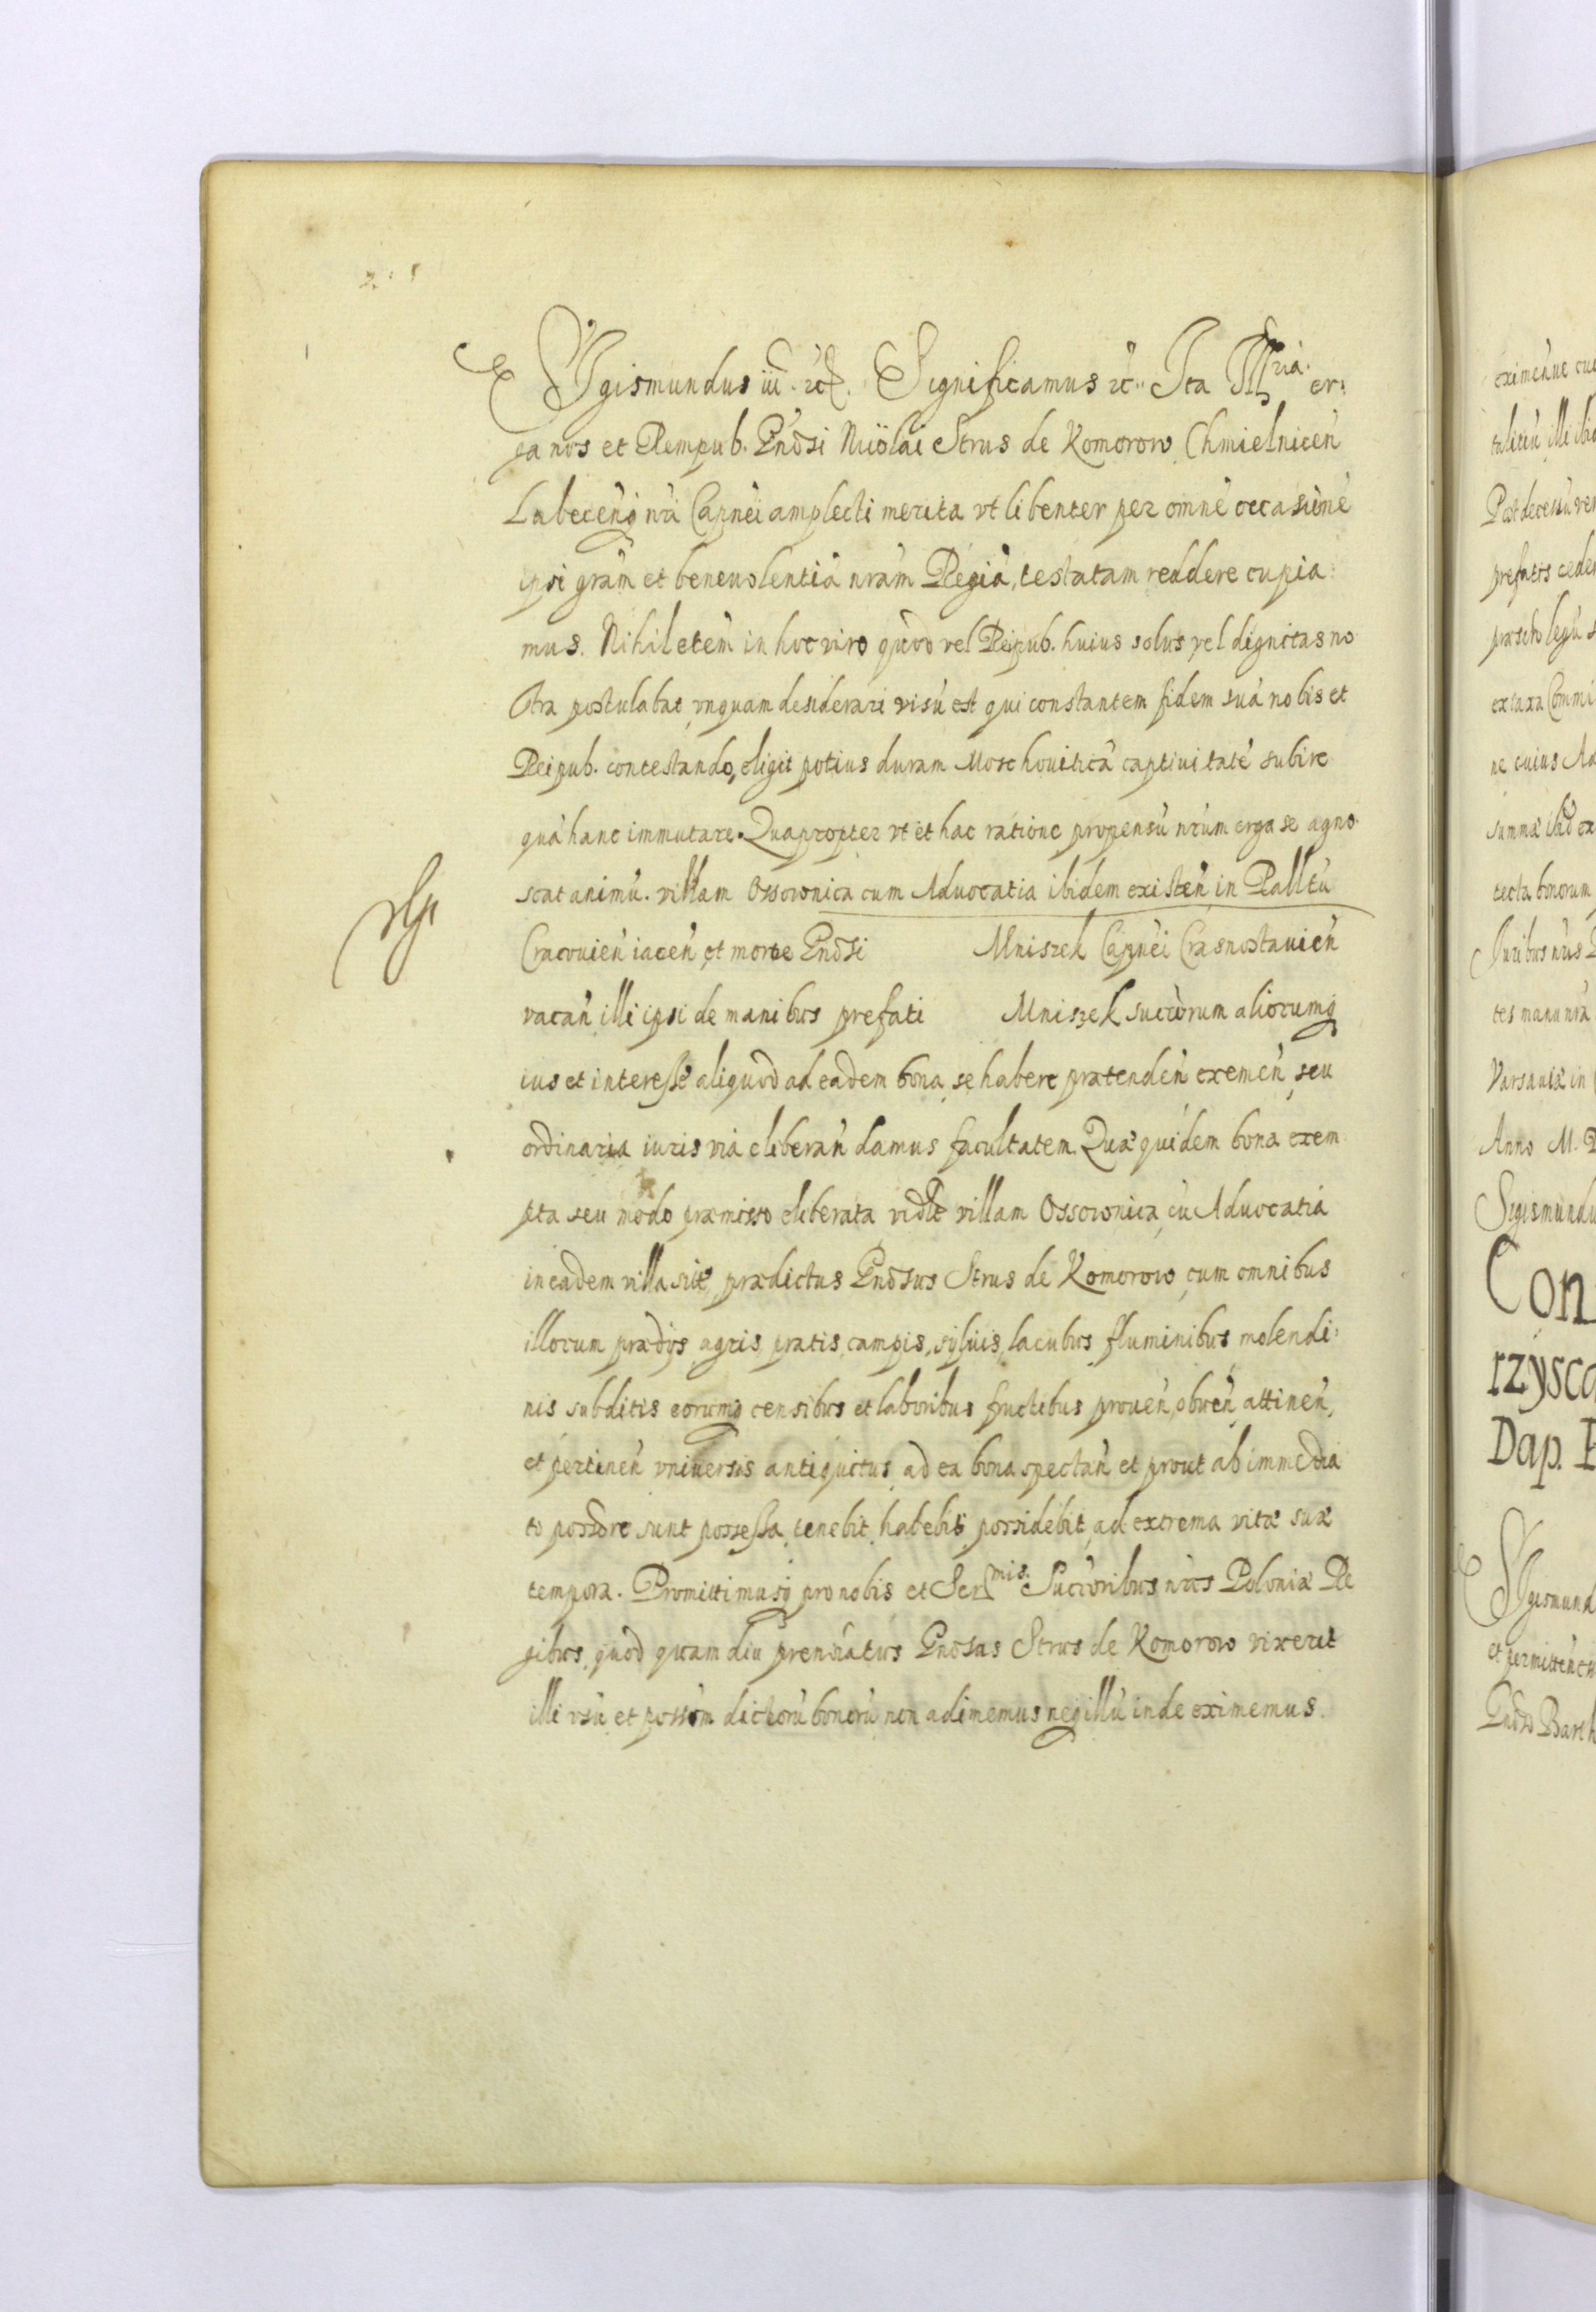 Sigismundus iii. etc. Significamus etc. Ita Illria er:
ga nos et Rempub. Gnosi Nicolai Strus de Komorow Chmielnicen̄
Lubecen̄q nr̄i Capnei amplecti merita vt libenter per omnē occasionē
ipsi grām et beneuolentiā nrām Regiā, testatam reddere cupia:
mus. Nihil etem̄ in hoc viro quod vel Reipub. huius solus vel dignitas no
stra postulabat vnquam desiderari visū est qui constantem fidem suā nobis et
Reipub. contestando, eligit potius duram Moschouiticā captiuitatē subire
quā hanc immutare. Quapropter vt et hac ratione propensū nr̄um erga se agno
scat animū. villam Ossownica cum Aduocatia ibidem existen̄ in Palltu
Cracouien̄ iacen̄ et morte Gnosi Mniszek Capnei Crasnostauien̄
vacan̄ illi ipsi de manibus prefati Mniszek succorum aliorumq
ius et interesse aliquod ad eadem bona se habere prætenden̄ exemen̄ seu
ordinaria iuris via eliberan̄ damus facultatem. Quæ quidem bona exem
pta seu modo præmisso eliberata vidlt villam Ossownica cū Aduocatia
in eadem villa sitē prædictus Gnosus Strus de Komorow cum omnibus
illorum prædijs agris pratis, campis, syluis, lacubus fluminibus molendi:
nis subditis eorumq censibus et laboribus fructibus prouen̄, obuen̄ attinen̄,
et pertinen̄ vniuersis antiquitus ad ea bona spectan̄ et prout ab immedia
to possore sunt possessa, tenebit habebit possidebit ad extrema vitæ suæ
tempora. Promittimusq pro nobis et Sermis Succoribus nr̄is Poloniæ Re
gibus, quod quam diu prenoiatus Gnosus Strus de Komorow vixerit
illi vsū et possom dictorū bonorū non adimemus neq illū inde eximemus.